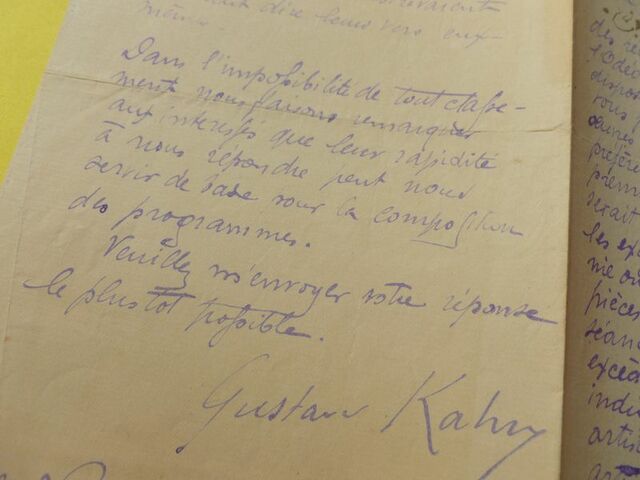 dire leurs vers eux-
mêmes.
Dans l'impossibilité de tout classe-
ment nous faisons remarquer
aux intéressés que leur rapidité
à nous répondre peut nous
servir de base pour la composition
des programmes.
Veuillez m'envoyer votre réponse
le plus tôt possible.
Gustave Kahn
des
l'Odé
dispos
vous
œuvres
préfére
premi
serait
les ex
me ou
pièces
séan
excéd
indi
artis